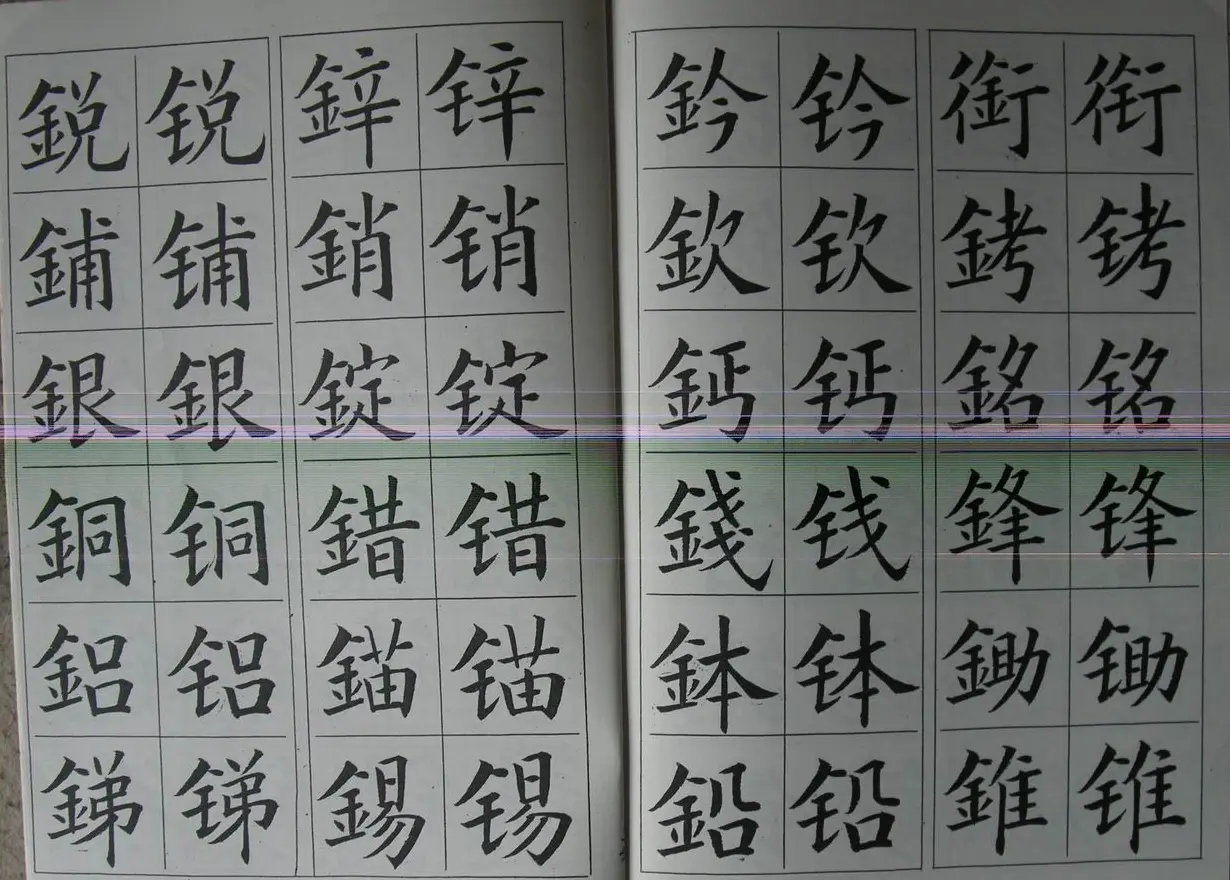 鋭 锐 鋅 锌 鈐 钤 銜 衔
鋪 铺 銷 销 欽 钦 銬 铐
銀 銀 錠 锭 鈣 钙 銘 铭
銅 铜 錯 错 錢 钱 鋒 锋
鋁 铝 錨 锚 鉢 钵 鋤 锄
銻 锑 錫 锡 鉛 铅 錐 锥